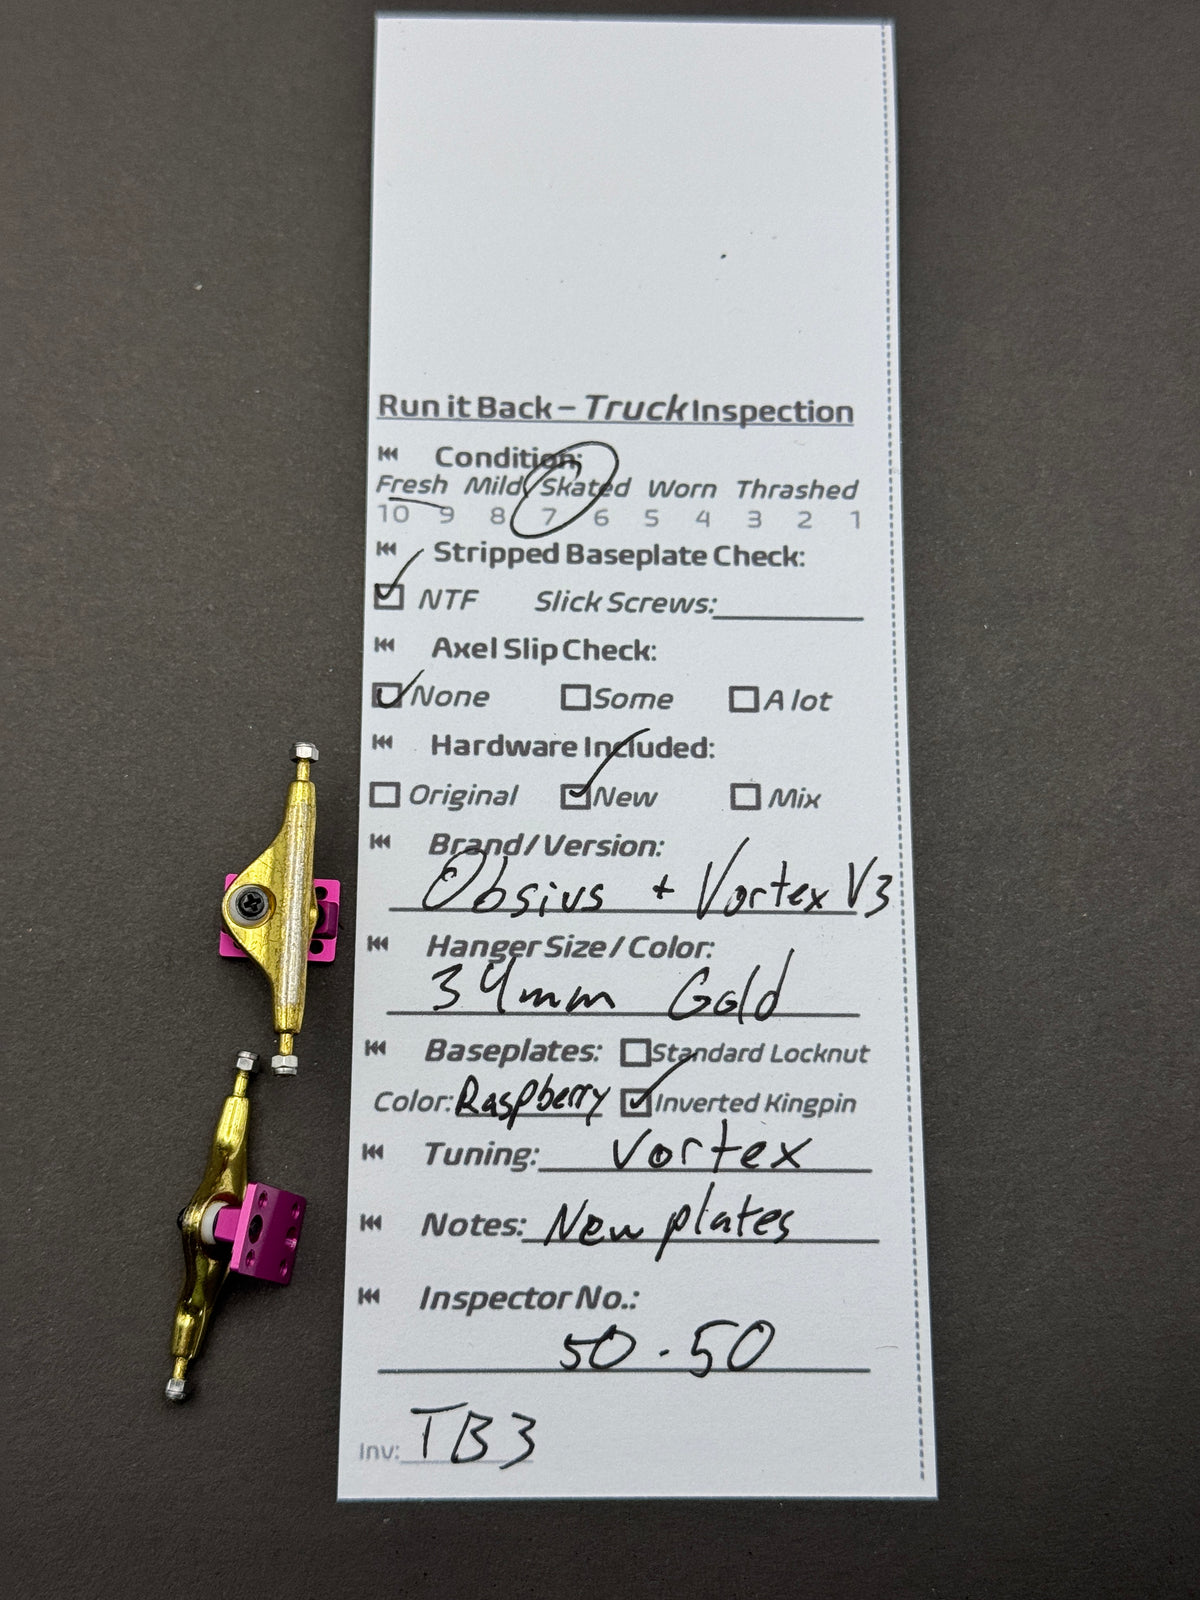 Run it Back – Truck Inspection
Condition:
Fresh Mild Skated Worn Thrashed
10 9 8 7 6 5 4 3 2 1
Stripped Baseplate Check:
NTF Slick Screws:
Axel Slip Check:
None Some A lot
Hardware Included:
Original New Mix
Brand/Version:
Obsius + Vortex V3
Hanger Size/Color:
34mm Gold
Baseplates: Standard Locknut
Color: Raspberry Inverted Kingpin
Tuning: Vortex
Notes: New plates
Inspector No.:
50-50
Inv: TB3